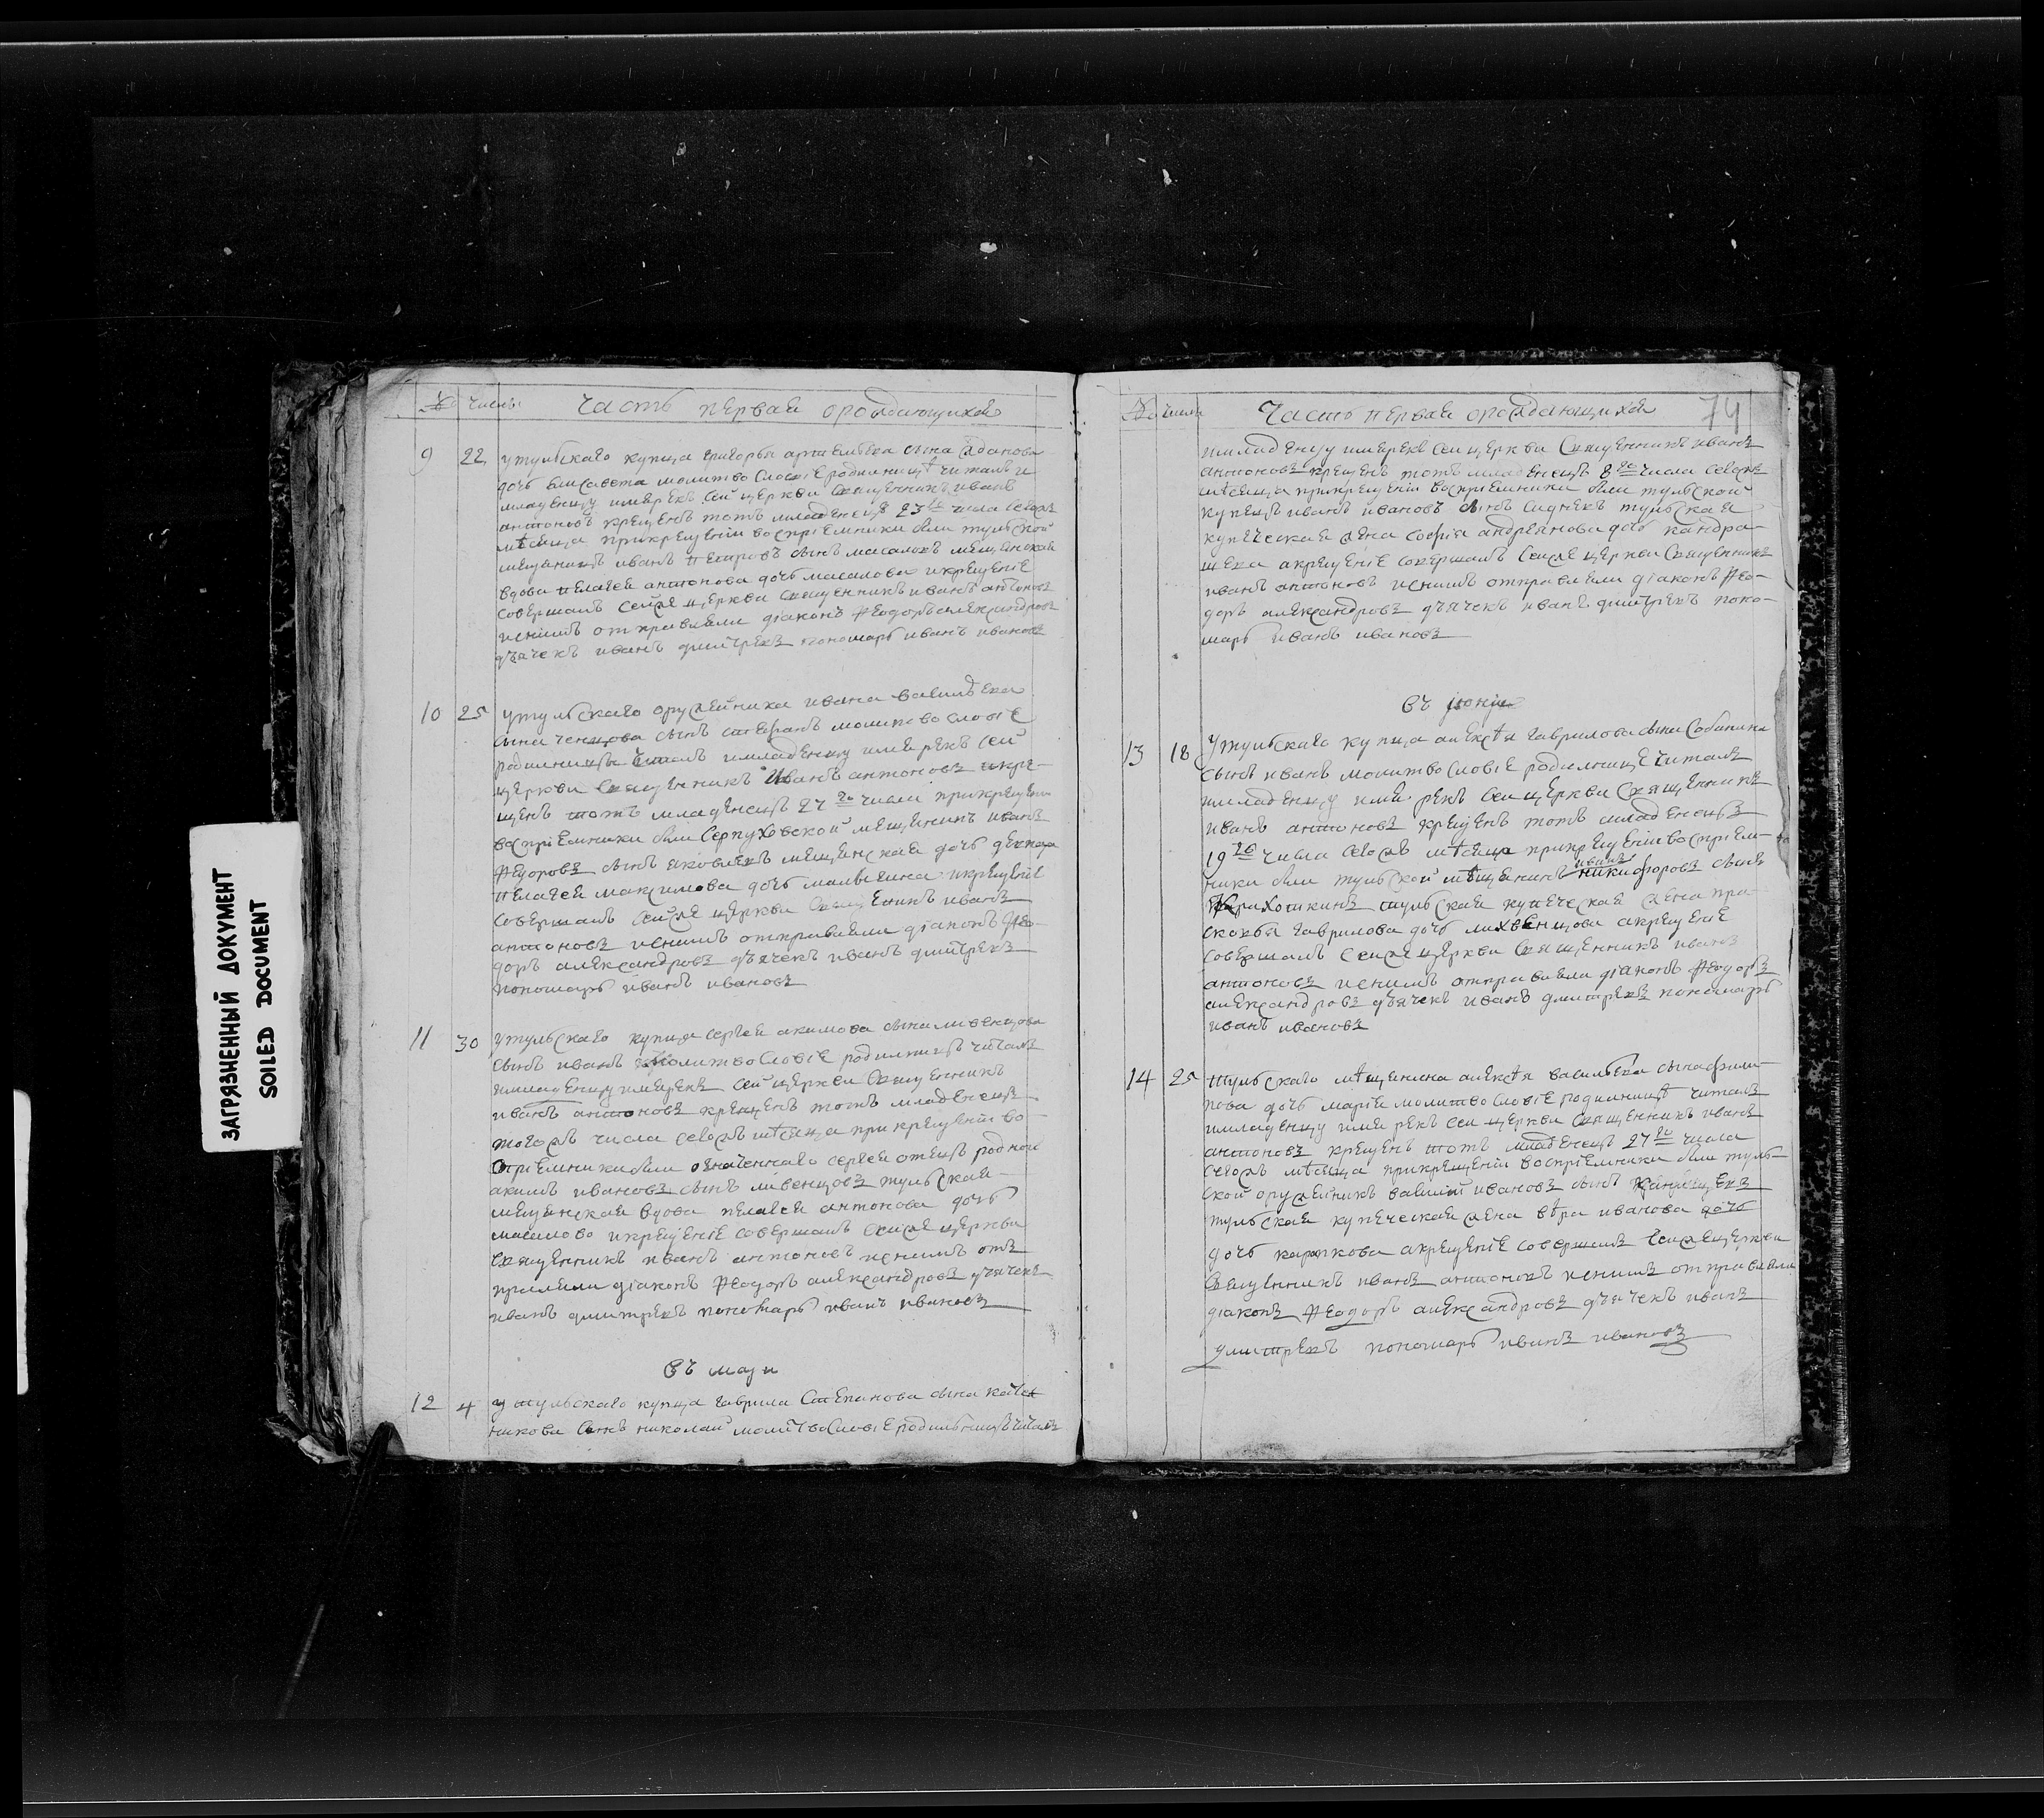 № числы Часть первая ораждающихся
9 22 утульскаго купца григорья артемьева сына
дочь Елисавета молитвословіе родилницѣ читалъ и
младенцу имярекъ сей церкви священникъ иванъ
антоновъ крещенъ тотъ младенецъ 23го числа сегожъ
мѣсяца прикрещеніи воспріемники были тульской
мещанинъ иванъ петровъ сынъ масаловъ мещанская
вдова пелагея антонова дочь масалова икрещеніе
совершалъ сейже церкви священникъ иванъ антоновъ
иснимъ отправляли діаконъ Феодоръ александровъ
дьячекъ иванъ дмитревъ пономарь иванъ ивановъ
10 25 утульскаго оружейника ивана васильева
сына сынъ стефанъ молитвословіе
родилницы читалъ имладенцу имярекъ сей
церкви священникъ Иванъ антоновъ икре-
щенъ тотъ младенецъ 27го числа прикрещени
воспріемники были Серпуховской мещенинъ иванъ
Федоровъ сынъ яковлевъ мещенская дочь девица
пелагея максимова дочь малыгина икрещеніе
совершалъ сейже церкви священникъ иванъ
антоновъ иснимъ отправляли діаконъ Фео-
доръ александровъ дьячекъ иванъ дмитревъ
пономарь иванъ ивановъ
11 30 утульскаго купца сергея акимова сына ливенцова
сынъ иванъ молитвословіе родилницѣ читалъ
имладенцу имярекъ сей церкви священникъ
иванъ антоновъ крещенъ тотъ младенецъ
тогожъ числа сегожъ мѣсяца прикрещеніи во-
спріемники были означеннаго сергея отецъ родной
акимъ ивановъ сынъ ливенцовъ тульская
мещенская вдова пелагея антонова дочь
масалова икрещеніе совершалъ сейже церкви
священникъ иванъ антоновъ иснимъ отъ
правляли діаконъ Феодоръ александровъ дьячекъ
иванъ дмитревъ пономарь иванъ ивановъ
Въ маји
12 4 утульскаго купца гаврила Степанова сына
никова сынъ николай молитвословіе родильницѣ читалъ
№ числа Часть первая ораждающихся 74
имладенцу имярекъ сей церкви священникъ иванъ
антоновъ крещенъ тотъ младенецъ 8го числа сегожъ
мѣсяца прикрещеніи воспріемники были тульской
купецъ иванъ ивановъ сынъ тульская
купеческая жена софія андреянова дочь кандра-
щева акрещеніе совершалъ сейже церкви священникъ
иванъ антоновъ иснимъ отправляли діаконъ Фео-
доръ александровъ дьячекъ иванъ дмитревъ поно-
марь иванъ ивановъ
въ јюнји
13 18 Утульскаго купца алексѣя гаврилова сына Собинина
сынъ иванъ молитвословіе родилнице читалъ
имладенцу имя рекъ сей церкви священникъ
иванъ антоновъ крещенъ тотъ младенецъ
19го числа сегожъ мѣсяца прикрещеніи воспріем-
ники были тульской мѣщенинъ иванъ никифоровъ сынъ
тульская купеческая жена пра-
сковья гаврилова дочь акрещеніе
совершалъ сейже церкви священникъ иванъ
антоновъ иснимъ отправляли діаконъ Феодоръ
александровъ дьячекъ иванъ дмитревъ пономарь
иванъ ивановъ
14 25 тульскаго мѣщенина алексѣя васильева сына фили-
пова дочь марія молитвословіе родилницѣ читалъ
имладенцу имя рекъ сей церкви священникъ иванъ
антоновъ крещенъ тотъ младенецъ 27го числа
сегожъ мѣсяца прикрещеніи воспріемники были туль-
ской оружейникъ василій ивановъ сынъ
тульская купеческая жена вѣра иванова дочь
дочь акрещеніе совершалъ сейже церкви
священникъ иванъ антоновъ иснимъ отправляли
діаконъ Феодоръ александровъ дьячекъ иванъ
дмитревъ пономарь иванъ ивановъ
ЗАГРЯЗНЕННЫЙ ДОКУМЕНТ
SOILED DOCUMENT